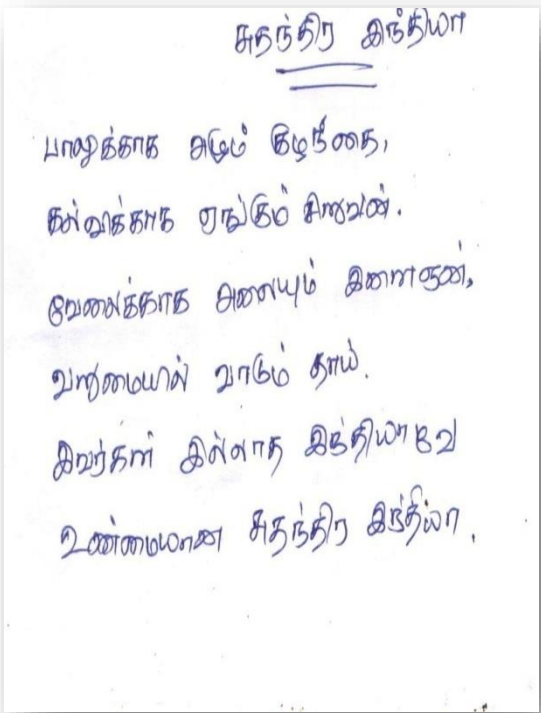 சுதந்திர இந்தியா
பாலுக்காக அழும் குழந்தை,
கல்விக்காக ஏங்கும் சிறுவன்.
வேலைக்காக அலையும் இளைஞன்,
வறுமையில் வாடும் தாய்.
இவர்கள் இல்லாத இந்தியாவே
உண்மையான சுதந்திர இந்தியா.